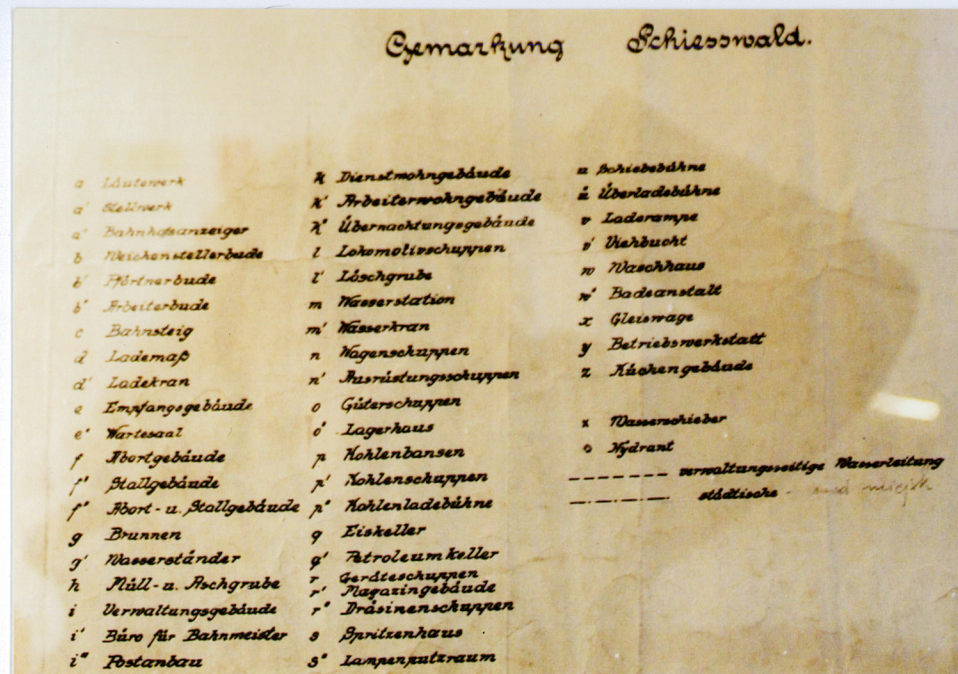 Gemarkung Schiesswald.
a Läutewerk
a' Stellwerk
a" Bahnhofsanzeiger
b Weichenstellerbude
b' Pförtnerbude
b" Arbeiterbude
c Bahnsteig
d Lademaß
d' Ladekran
e Empfangsgebäude
e' Wartesaal
f Abortgebäude
f' Stallgebäude
f" Abort- u. Stallgebäude
g Brunnen
g' Wasserständer
h Müll- u. Aschgrube
i Verwaltungsgebäude
i' Büro für Bahnmeister
i" Postanbau
k Dienstwohngebäude
k' Arbeiterwohngebäude
k" Übernachtungsgebäude
l Lokomotivschuppen
l' Löschgrube
m Wasserstation
m' Wasserkran
n Wagenschuppen
n' Ausrüstungsschuppen
o Güterschuppen
o' Lagerhaus
p Kohlenbansen
p' Kohlenschuppen
p" Kohlenladebühne
q Eiskeller
q' Petroleumkeller
r Geräteschuppen
r' Magazingebäude
r" Dräsinenschuppen
s Spritzenhaus
s" Lampenputzraum
u Schiebebühne
ü Überladebühne
v Laderampe
v' Viehbucht
w Waschhaus
w' Badeanstalt
x Gleiswage
y Betriebswerkstatt
z Küchengebäude
x Wasserschieber
o Hydrant
verwaltungsseitige Wasserleitung
städtische